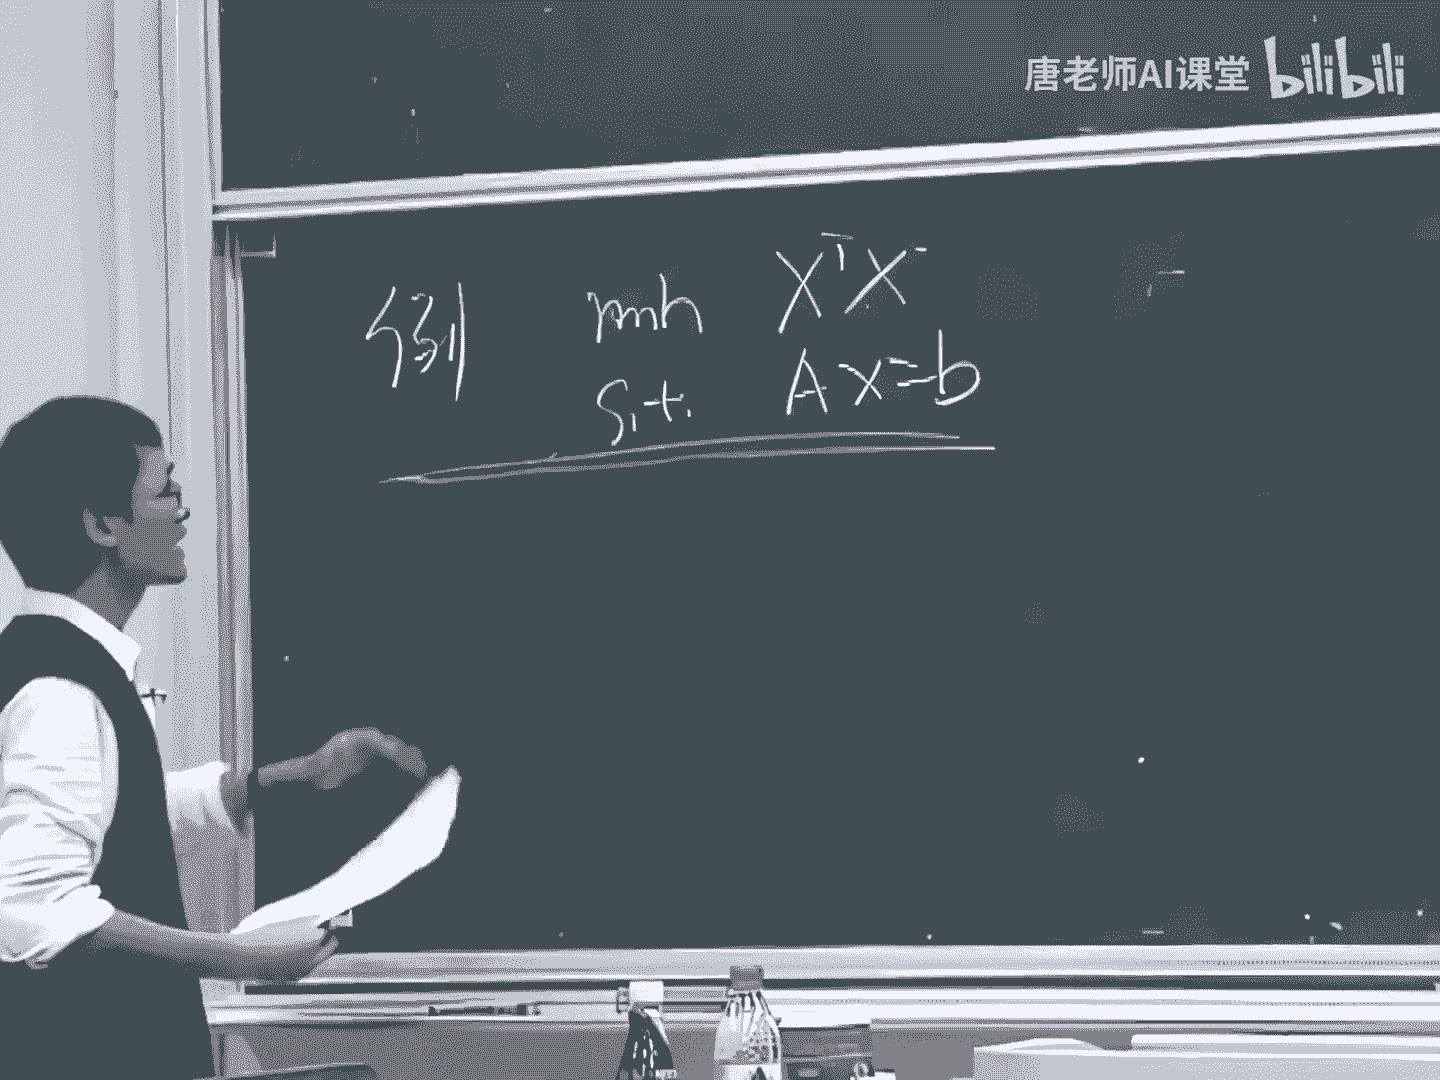 唐老师AI课堂 bilibili
例 min XᵀX
s.t. Ax=b